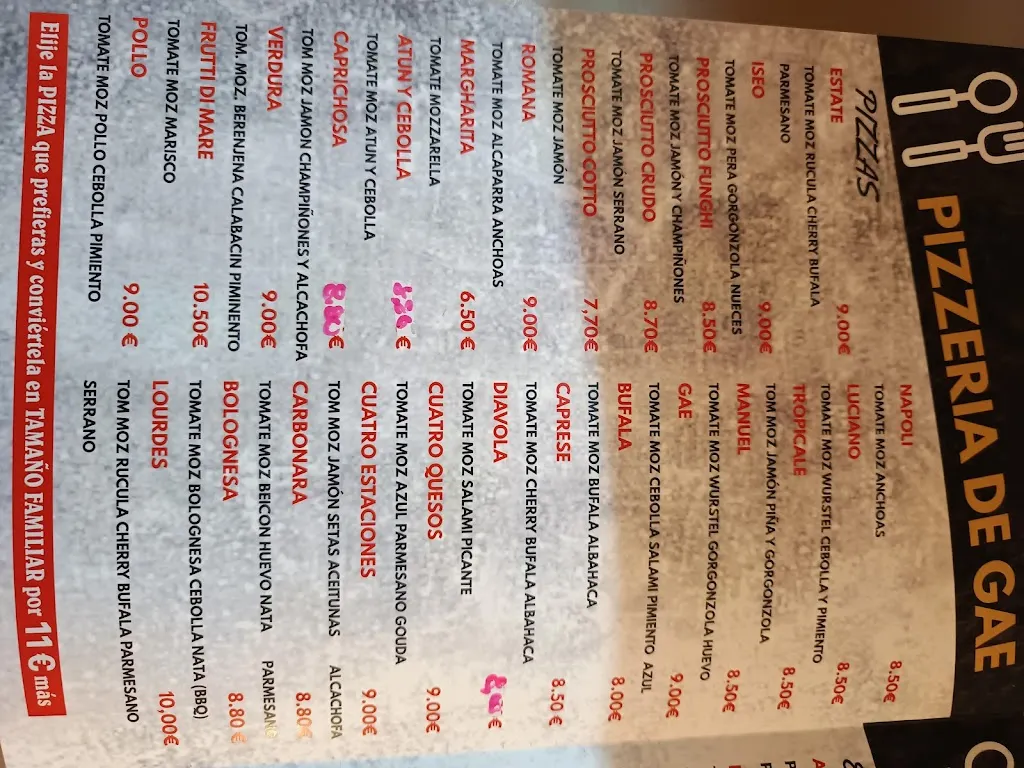 PIZZERIA DE GAE
PIZZAS
ESTATE 9.00€
TOMATE MOZ RUCULA CHERRY BUFALA
PARMESANO
ISEO 9.00€
TOMATE MOZ PERA GORGONZOLA NUECES
PROSCIUTTO FUNGHI 8.50€
TOMATE MOZ JAMÓN Y CHAMPIÑONES
PROSCIUTTO CRUDO 8.70€
TOMATE MOZ JAMÓN SERRANO
PROSCIUTTO COTTO 7,70€
TOMATE MOZ JAMÓN
ROMANA 9.00€
TOMATE MOZ ALCAPARRA ANCHOAS
MARGHARITA 6.50 €
TOMATE MOZZARELLA
ATUN Y CEBOLLA €
TOMATE MOZ ATUN Y CEBOLLA
CAPRICHOSA €
TOM MOZ JAMON CHAMPIÑONES Y ALCACHOFA
VERDURA 9.00€
TOM. MOZ, BERENJENA CALABACIN PIMINENTO
FRUTTI DI MARE 10.50€
TOMATE MOZ MARISCO
POLLO 9.00 €
TOMATE MOZ POLLO CEBOLLA PIMIENTO
NAPOLI 8.50€
TOMATE MOZ ANCHOAS
LUCIANO 8.50€
TOMATE MOZ WURSTEL CEBOLLA Y PIMIENTO
TROPICALE 8.50€
TOM MOZ JAMÓN PIÑA Y GORGONZOLA
MANUEL 8.50€
TOMATE MOZ WURSTEL GORGONZOLA HUEVO
GAE 9.00€
TOMATE MOZ CEBOLLA SALAMI PIMIENTO AZUL
BUFALA 8.00€
TOMATE MOZ BUFALA ALBAHACA
CAPRESE 8.50 €
TOMATE MOZ CHERRY BUFALA ALBAHACA
DIAVOLA €
TOMATE MOZ SALAMI PICANTE
CUATRO QUESOS 9.00€
TOMATE MOZ AZUL PARMESANO GOUDA
CUATRO ESTACIONES 9.00€
TOM MOZ JAMÓN SETAS ACEITUNAS ALCACHOFA
CARBONARA 8.80€
TOMATE MOZ BEICON HUEVO NATA PARMESANO
BOLOGNESA 8.80 €
TOMATE MOZ BOLOGNESA CEBOLLA NATA (BBQ)
LOURDES 10,00€
TOM MOZ RUCULA CHERRY BUFALA PARMESANO
SERRANO
Elije la PIZZA que prefieras y conviértela en TAMAÑO FAMILIAR por 11 € más